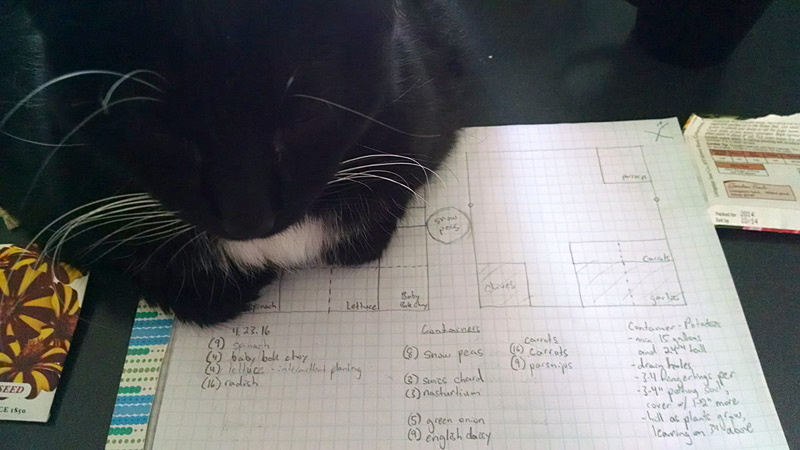 parsnips
snow
peas
carrots
chives
garlic
spinach
Lettuce
Baby
Bok choy
4.23.16
(9) spinach
(4) baby bok choy
(4) lettuce - intermittent planting
(16) radish
Containers
(8) snow peas
(2) swiss chard
(3) nasturtium
(5) green onion
(9) english daisy
carrots
(16) carrots
(9) parsnips
Container - Potatoes
- min 15 gallons
and 24" tall
- drain holes
- 3-4 per
- 3-4" potting soil,
cover w/ 1-2" more
- hill as plants grow,
leaving on 3" above
2014
12/14
SEED
CE 1850